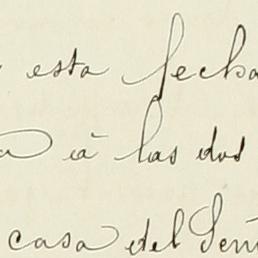 esta fecha
a á las dos
casa del Señ